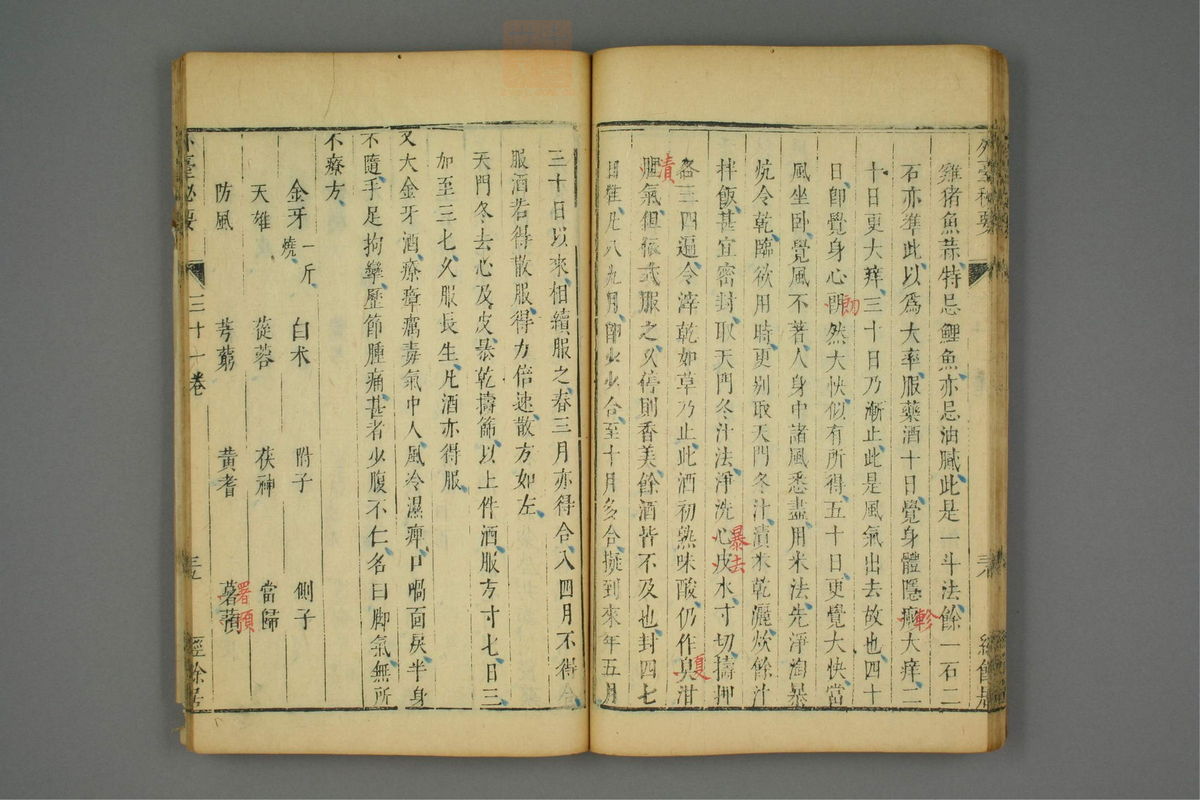 雞豬魚蒜特忌鯉魚亦忌油膩此是一斗法餘一石二
石亦準此以爲大率服藥酒十日覺身體隱大痒二
十日更大痒三十日乃漸止此是風氣出去故也四十
日卽覺身心然大快似有所得五十日更覺大快當
風坐臥覺風不著人身中諸風悉盡用米法先淨淘暴
炕令乾臨欲用時更别取天門冬汁漬米乾漉炊餘汁
拌飯甚宜密封取天門冬汁法淨洗心皮水寸切擣押
各三四遍令滓乾如草乃止此酒初熟味酸仍作臭泔
氣但依式服之久停則香美餘酒皆不及也封四七
日惟九八九月卽少少合至十月多合擬到來年五月
三十日以來相續服之春三月亦得合入四月不得合
服酒若得散服得力倍速散方如左
天門冬去心及皮暴乾擣篩以上件酒服方寸七日三
加至三七久服長生凡酒亦得服
又大金牙酒療瘴癘毒氣中人風冷濕痺口喎面戾半身
不隨手足拘攣歷節腫痛甚者少腹不仁名曰脚氣無所
不療方
金牙一斤燒 白朮 附子 側子
天雄 蓯蓉 茯神 當歸
防風 芎藭 黃耆 薯蕷
外臺秘要 三十一卷 經餘居
漬
暴去
夏
署預